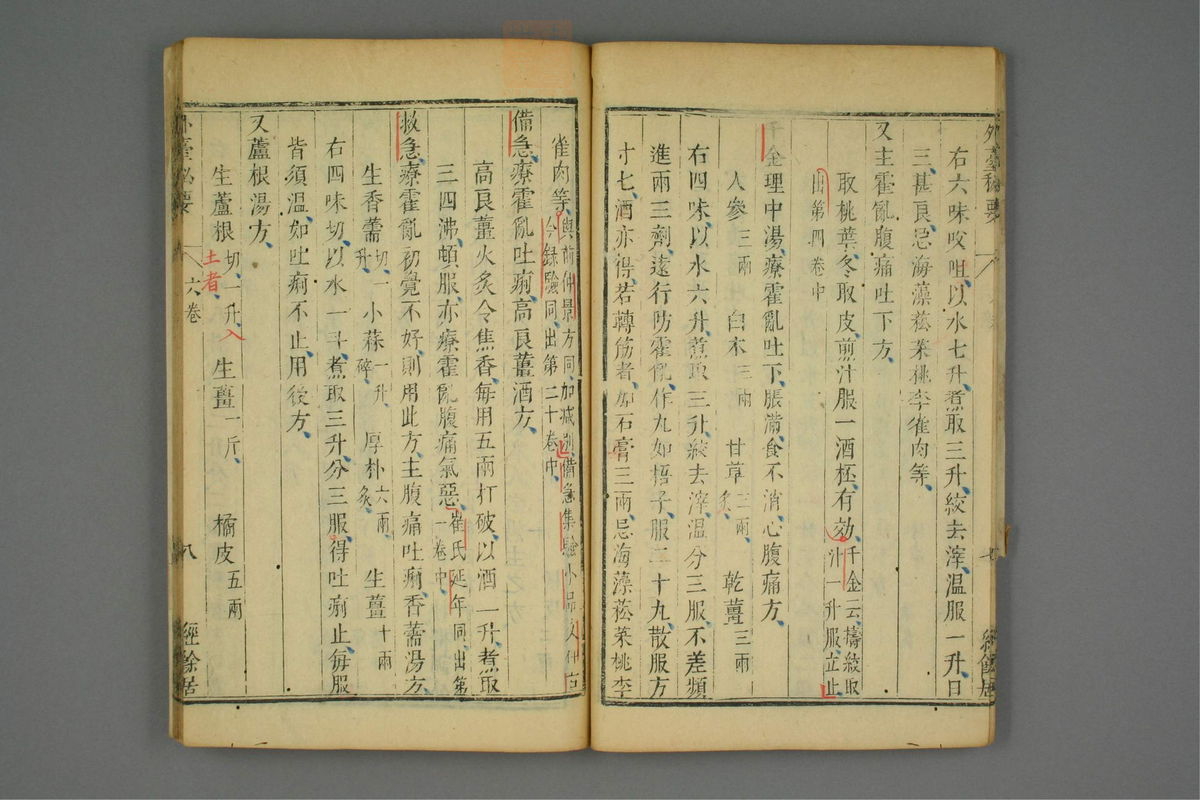 右六味㕮咀以水七升煮取三升絞去滓溫服一升日
三、甚良、忌海藻菘菜桃李雀肉等、
又主霍亂腹痛吐下方、
取桃葉、冬取皮、煎汁服一酒柸、有効、千金云、擣絞取汁一升服、立止、
出第四卷中
千金理中湯、療霍亂吐下脹滿、食不消、心腹痛方、
人參三兩 白朮三兩 甘草三兩、炙、 乾薑三兩
右四味、以水六升、煮取三升、絞去滓、溫分三服、不差、頻
進兩三劑、遠行防霍亂、作丸如梧子、服二十丸、散服方
寸七、酒亦得、若轉筋者、加石膏三兩、忌海藻菘菜桃李
雀肉等、與前仲景方同、加減別、備急集驗小品文仲古今録驗同、出第二十卷中、
備急、療霍亂吐痢、高良薑酒方、
高良薑火炙令焦香、每用五兩、打破、以酒一升、煮取
三四沸、頓服、亦療霍亂腹痛氣惡、崔氏延年同、出第一卷中、
救急、療霍亂、初覺不好、則用此方、主腹痛吐痢、香薷湯方、
生香薷切、一升、 小蒜一升、碎、 厚朴六兩、炙、 生薑十兩
右四味切、以水一斗、煮取三升、分三服、得吐痢止、每服
皆須溫、如吐痢不止、用後方、
又蘆根湯方、
生蘆根切、一升、 生薑一斤、 橘皮五兩
土者、
外臺祕要 六卷 八 經餘居